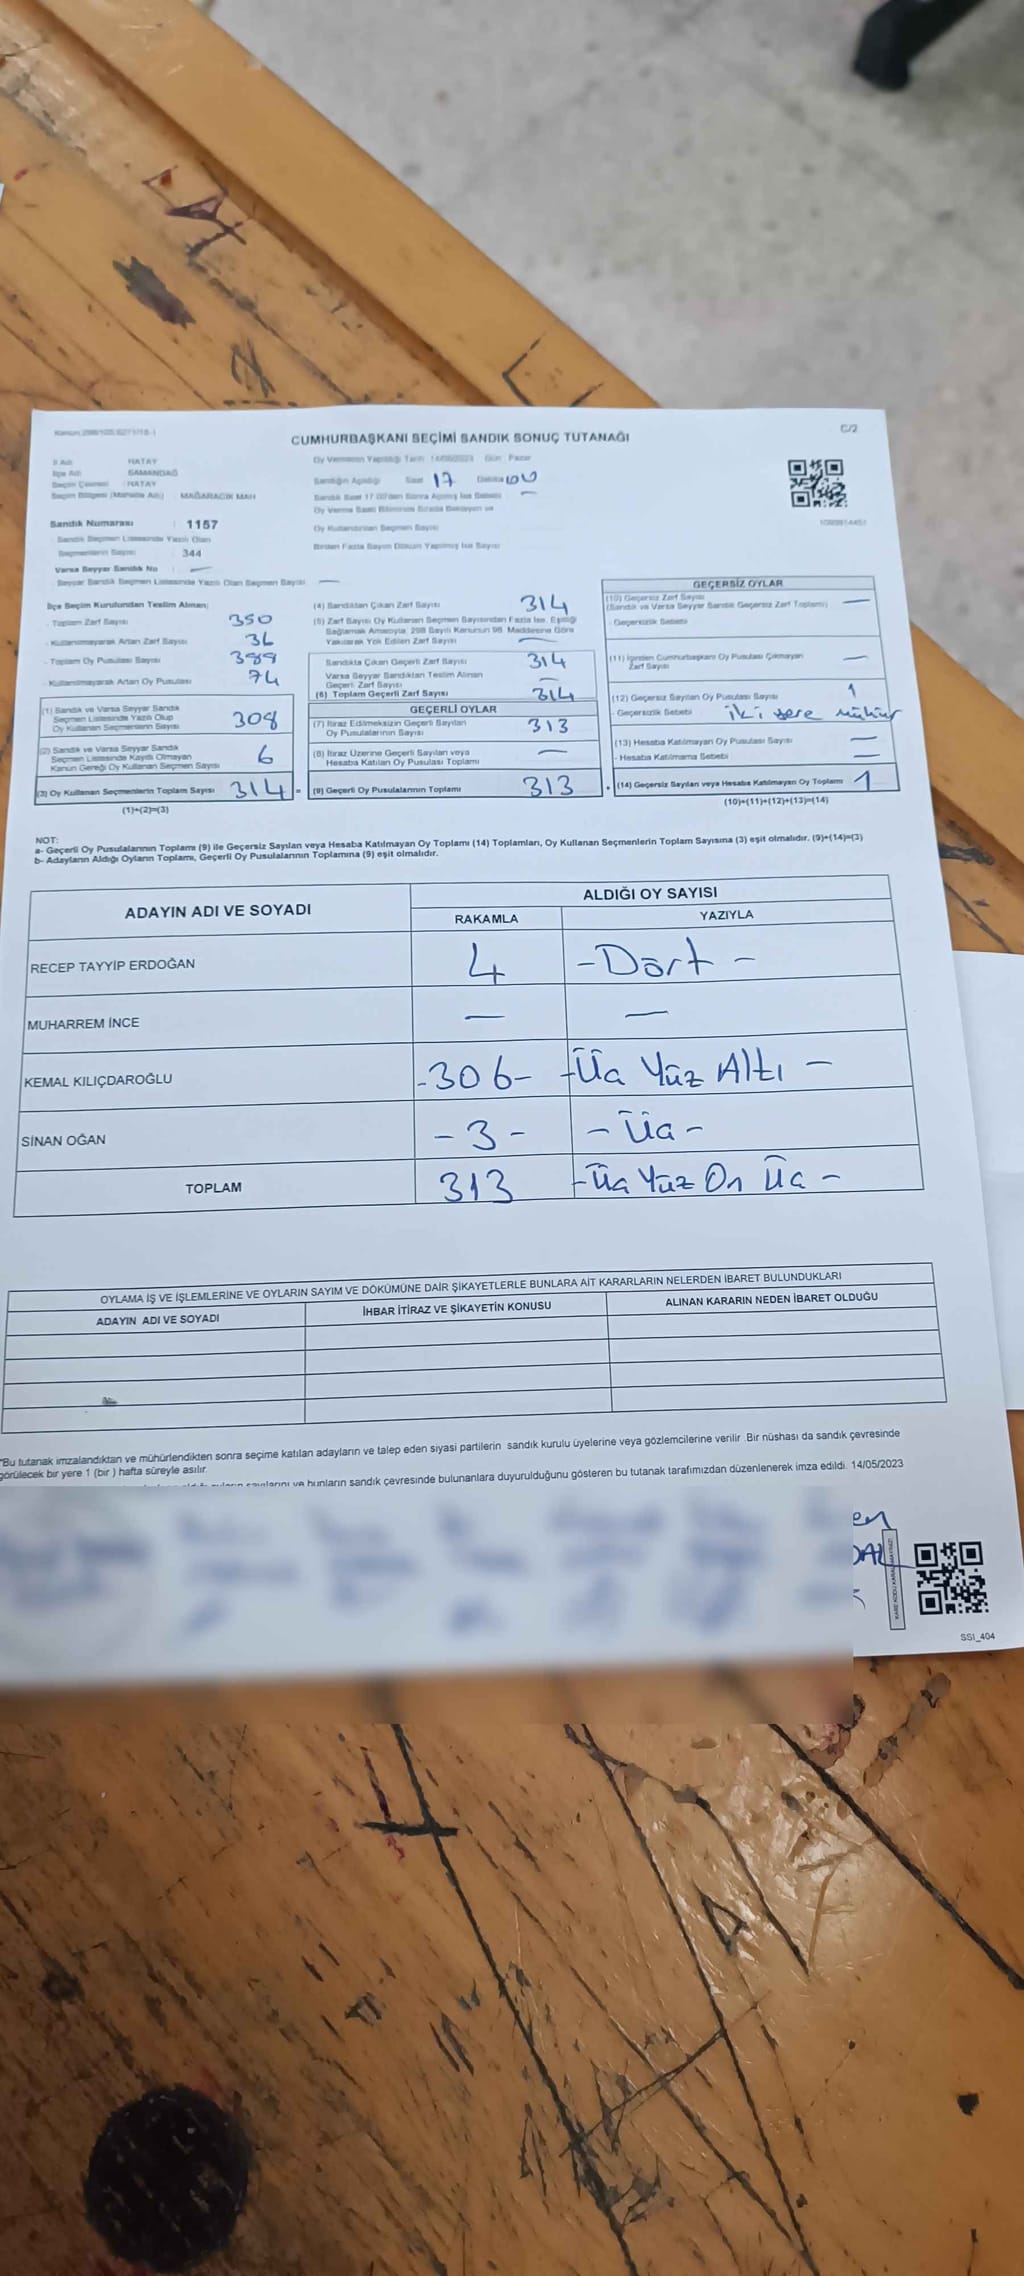 CUMHURBAŞKANI SEÇİMİ SANDIK SONUÇ TUTANAĞI
C/2
İl Adı : HATAY
İlçe Adı : SAMANDAĞ
Seçim Çevresi : HATAY
Seçim Bölgesi (Mahalle Adı) : MAĞARACIK MAH
Sandık Numarası : 1157
Sandık Seçmen Listesinde Yazılı Olan
Seçmenlerin Sayısı : 344
Varsa Seyyar Sandık No : —
Seyyar Sandık Seçmen Listesinde Yazılı Olan Seçmen Sayısı —
Oy Vermenin Yapıldığı Tarih : 14/05/2023 Gün : Pazar
Sandığın Açıldığı Saat 17 Dakika 00
Sandık Saat 17.00'den Sonra Açılmış İse Sebebi —
Oy Verme Saati Bitiminde Sırada Bekleyen ve
Oy Kullandırılan Seçmen Sayısı
Birden Fazla Sayım Döküm Yapılmış İse Sayısı
İlçe Seçim Kurulundan Teslim Alınan;
- Toplam Zarf Sayısı 350
- Kullanılmayarak Artan Zarf Sayısı 36
- Toplam Oy Pusulası Sayısı
- Kullanılmayarak Artan Oy Pusulası 74
(1) Sandık ve Varsa Seyyar Sandık
Seçmen Listesinde Yazılı Olup
Oy Kullanan Seçmenlerin Sayısı 308
(2) Sandık ve Varsa Seyyar Sandık
Seçmen Listesinde Kayıtlı Olmayan
Kanun Gereği Oy Kullanan Seçmen Sayısı 6
(3) Oy Kullanan Seçmenlerin Toplam Sayısı 314 =
(1)+(2)=(3)
(4) Sandıktan Çıkan Zarf Sayısı 314
(5) Zarf Sayısı Oy Kullanan Seçmen Sayısından Fazla İse, Eşitliği
Sağlamak Amacıyla, 298 Sayılı Kanunun 98. Maddesine Göre
Yakılarak Yok Edilen Zarf Sayısı —
Sandıkta Çıkan Geçerli Zarf Sayısı 314
Varsa Seyyar Sandıktan Teslim Alınan
Geçerli Zarf Sayısı —
(6) Toplam Geçerli Zarf Sayısı 314
GEÇERLİ OYLAR
(7) İtiraz Edilmeksizin Geçerli Sayılan
Oy Pusulalarının Sayısı 313
(8) İtiraz Üzerine Geçerli Sayılan veya
Hesaba Katılan Oy Pusulası Toplamı —
(9) Geçerli Oy Pusulalarının Toplamı 313 +
GEÇERSİZ OYLAR
(10) Geçersiz Zarf Sayısı
(Sandık ve Varsa Seyyar Sandık Geçersiz Zarf Toplamı) —
- Geçersizlik Sebebi
(11) İçinden Cumhurbaşkanı Oy Pusulası Çıkmayan
Zarf Sayısı —
(12) Geçersiz Sayılan Oy Pusulası Sayısı 1
- Geçersizlik Sebebi iki yere mühür
(13) Hesaba Katılmayan Oy Pusulası Sayısı —
- Hesaba Katılmama Sebebi —
(14) Geçersiz Sayılan veya Hesaba Katılmayan Oy Toplamı 1
(10)+(11)+(12)+(13)=(14)
NOT:
a- Geçerli Oy Pusulalarının Toplamı (9) ile Geçersiz Sayılan veya Hesaba Katılmayan Oy Toplamı (14) Toplamları, Oy Kullanan Seçmenlerin Toplam Sayısına (3) eşit olmalıdır. (9)+(14)=(3)
b- Adayların Aldığı Oyların Toplamı, Geçerli Oy Pusulalarının Toplamına (9) eşit olmalıdır.
ADAYIN ADI VE SOYADI
ALDIĞI OY SAYISI
RAKAMLA YAZIYLA
RECEP TAYYİP ERDOĞAN 4 - Dört -
MUHARREM İNCE — —
KEMAL KILIÇDAROĞLU -306- -Üç Yüz Altı -
SİNAN OĞAN - 3 - - Üç -
TOPLAM 313 -Üç Yüz On Üç -
OYLAMA İŞ VE İŞLEMLERİNE VE OYLARIN SAYIM VE DÖKÜMÜNE DAİR ŞİKAYETLERLE BUNLARA AİT KARARLARIN NELERDEN İBARET BULUNDUKLARI
ADAYIN ADI VE SOYADI İHBAR İTİRAZ VE ŞİKAYETİN KONUSU ALINAN KARARIN NEDEN İBARET OLDUĞU
*Bu tutanak imzalandıktan ve mühürlendikten sonra seçime katılan adayların ve talep eden siyasi partilerin sandık kurulu üyelerine veya gözlemcilerine verilir .Bir nüshası da sandık çevresinde
görülecek bir yere 1 (bir ) hafta süreyle asılır.
sayılarını ve bunların sandık çevresinde bulunanlara duyurulduğunu gösteren bu tutanak tarafımızdan düzenlenerek imza edildi. 14/05/2023
SSI_404